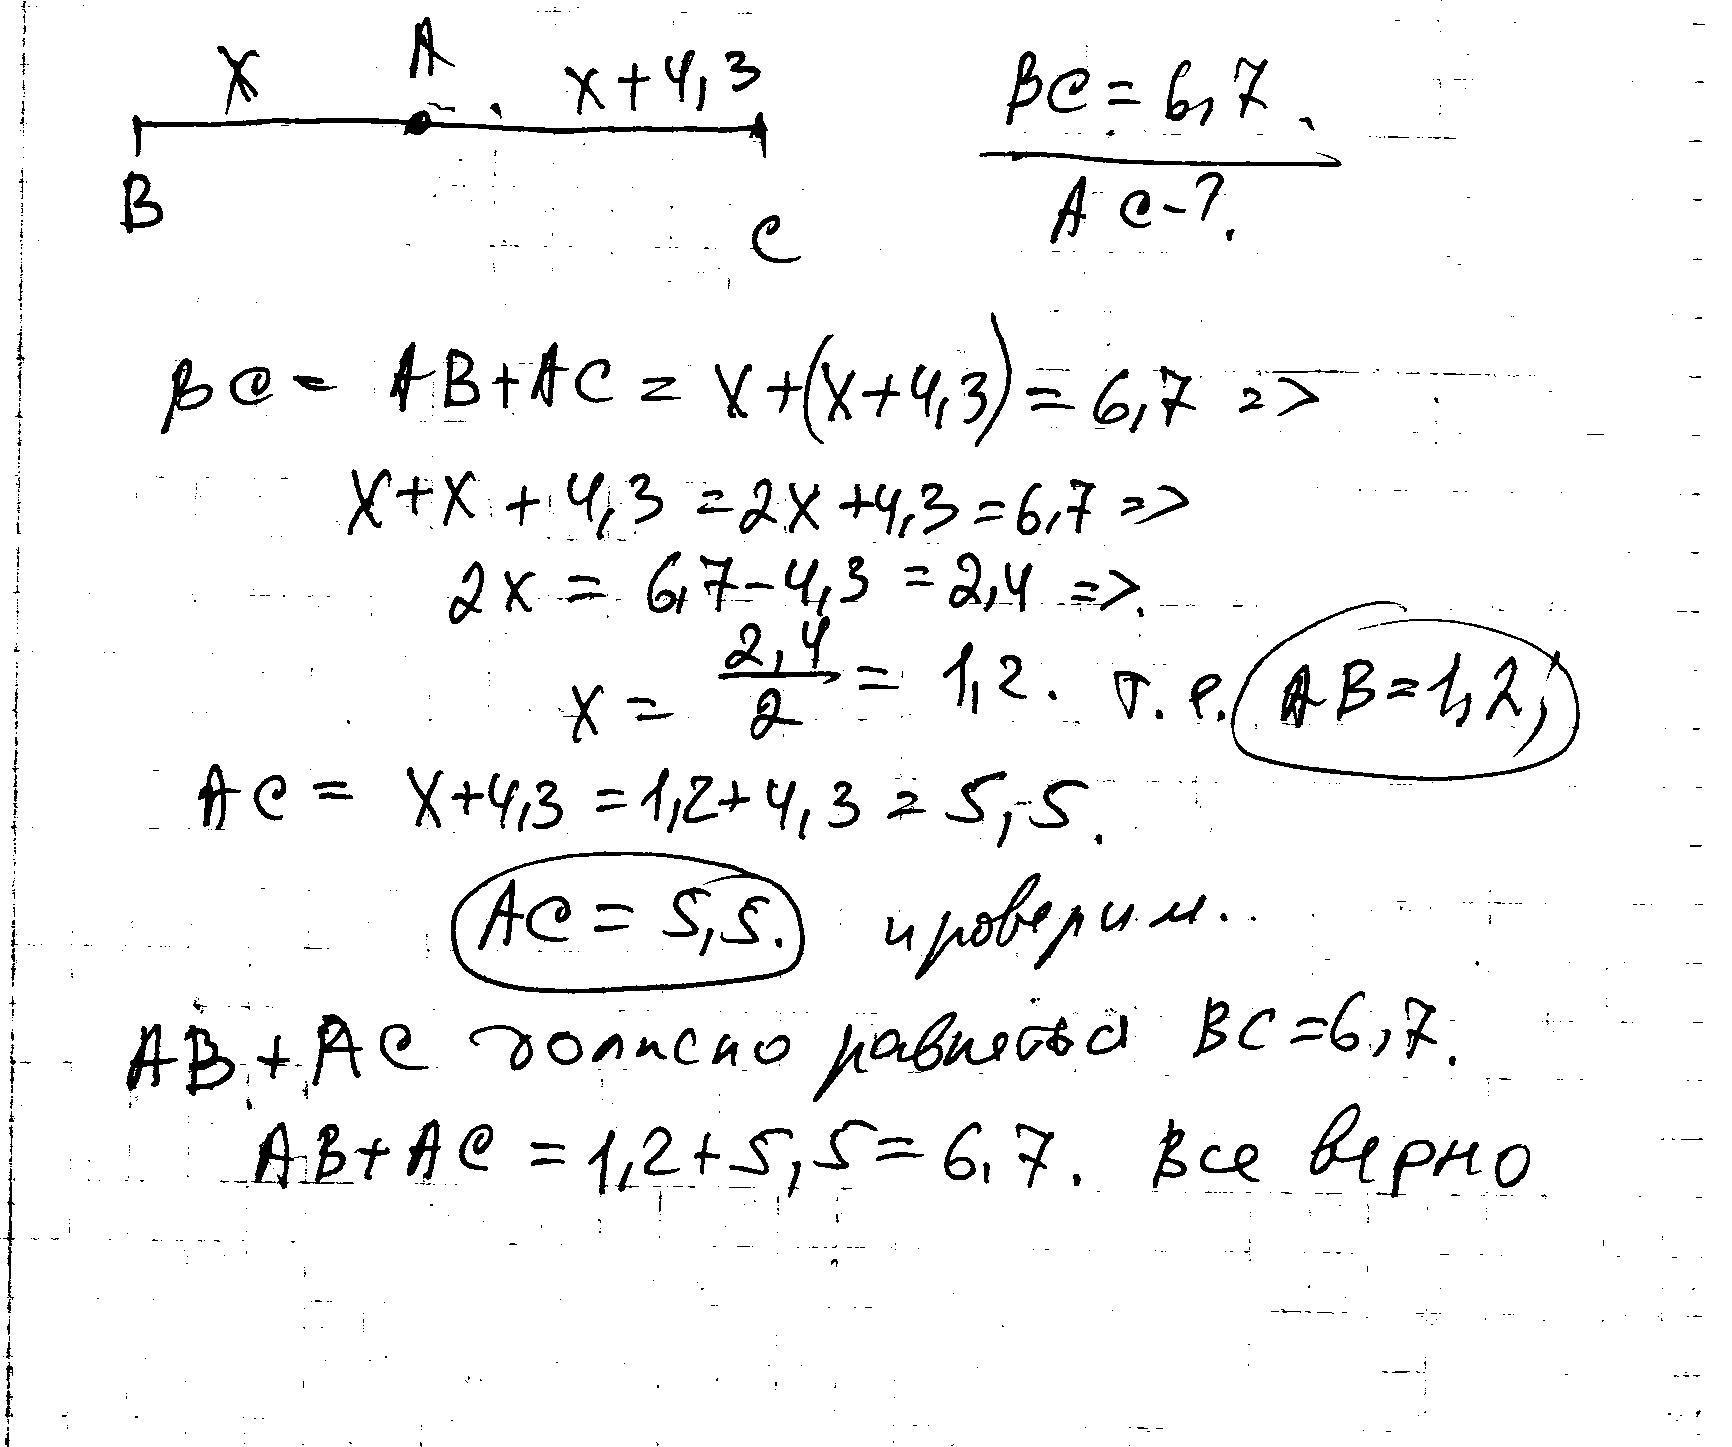 x A x+4,3 BC=6,7.
B C AC-?.
BC = AB+AC = x+(x+4,3) = 6,7 =>
x+x+4,3 = 2x+4,3 = 6,7 =>
2x = 6,7-4,3 = 2,4 =>.
x = 2,4/2 = 1,2. т.е. AB=1,2;
AC = x+4,3 = 1,2+4,3 = 5,5.
AC = 5,5. проверим..
AB+AC должно равняться BC=6,7.
AB+AC = 1,2+5,5 = 6,7. Все верно